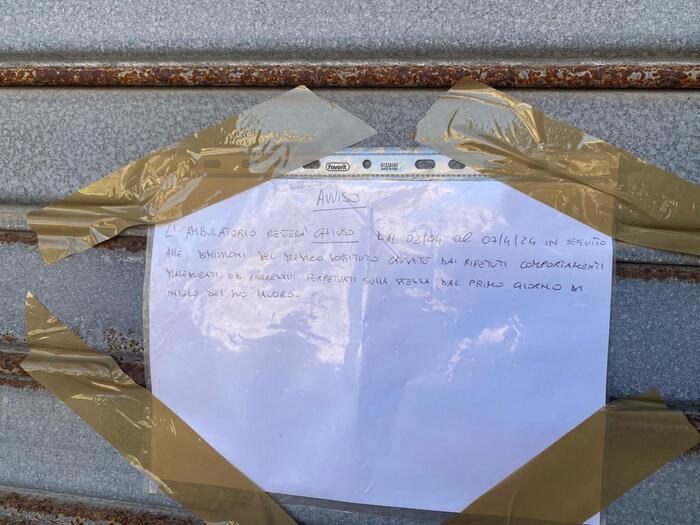 Favorit
MADE IN ITALY
AVVISO
L'AMBULATORIO RESTERA' CHIUSO DAL 02/04 al 07/4/24 IN SEGUITO
ALLE DIMISSIONI DEL MEDICO SOSTITUTO CAUSATE DAI RIPETUTI COMPORTAMENTI
MALEDUCATI ED AGGRESSIVI PERPETUATI SULLA STESSA DAL PRIMO GIORNO DI
INIZIO DEL SUO LAVORO.